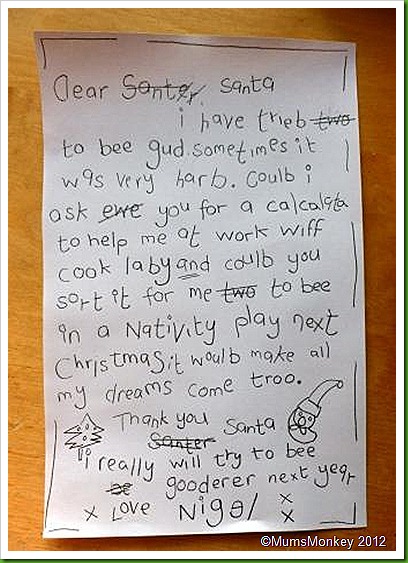 Dear Santer Santa
i have trieb two
to bee gud. sometimes it
was very harb. Coulb i
ask ewe you for a calcalata
to help me at work wiff
cook laby and coulb you
sort it for me two to bee
in a Nativity play next
Christmas it woulb make all
my dreams come troo.
Thank you
Santer Santa
i really will try to bee
be gooderer next year
x Love Nigel x
x
©MumsMonkey 2012